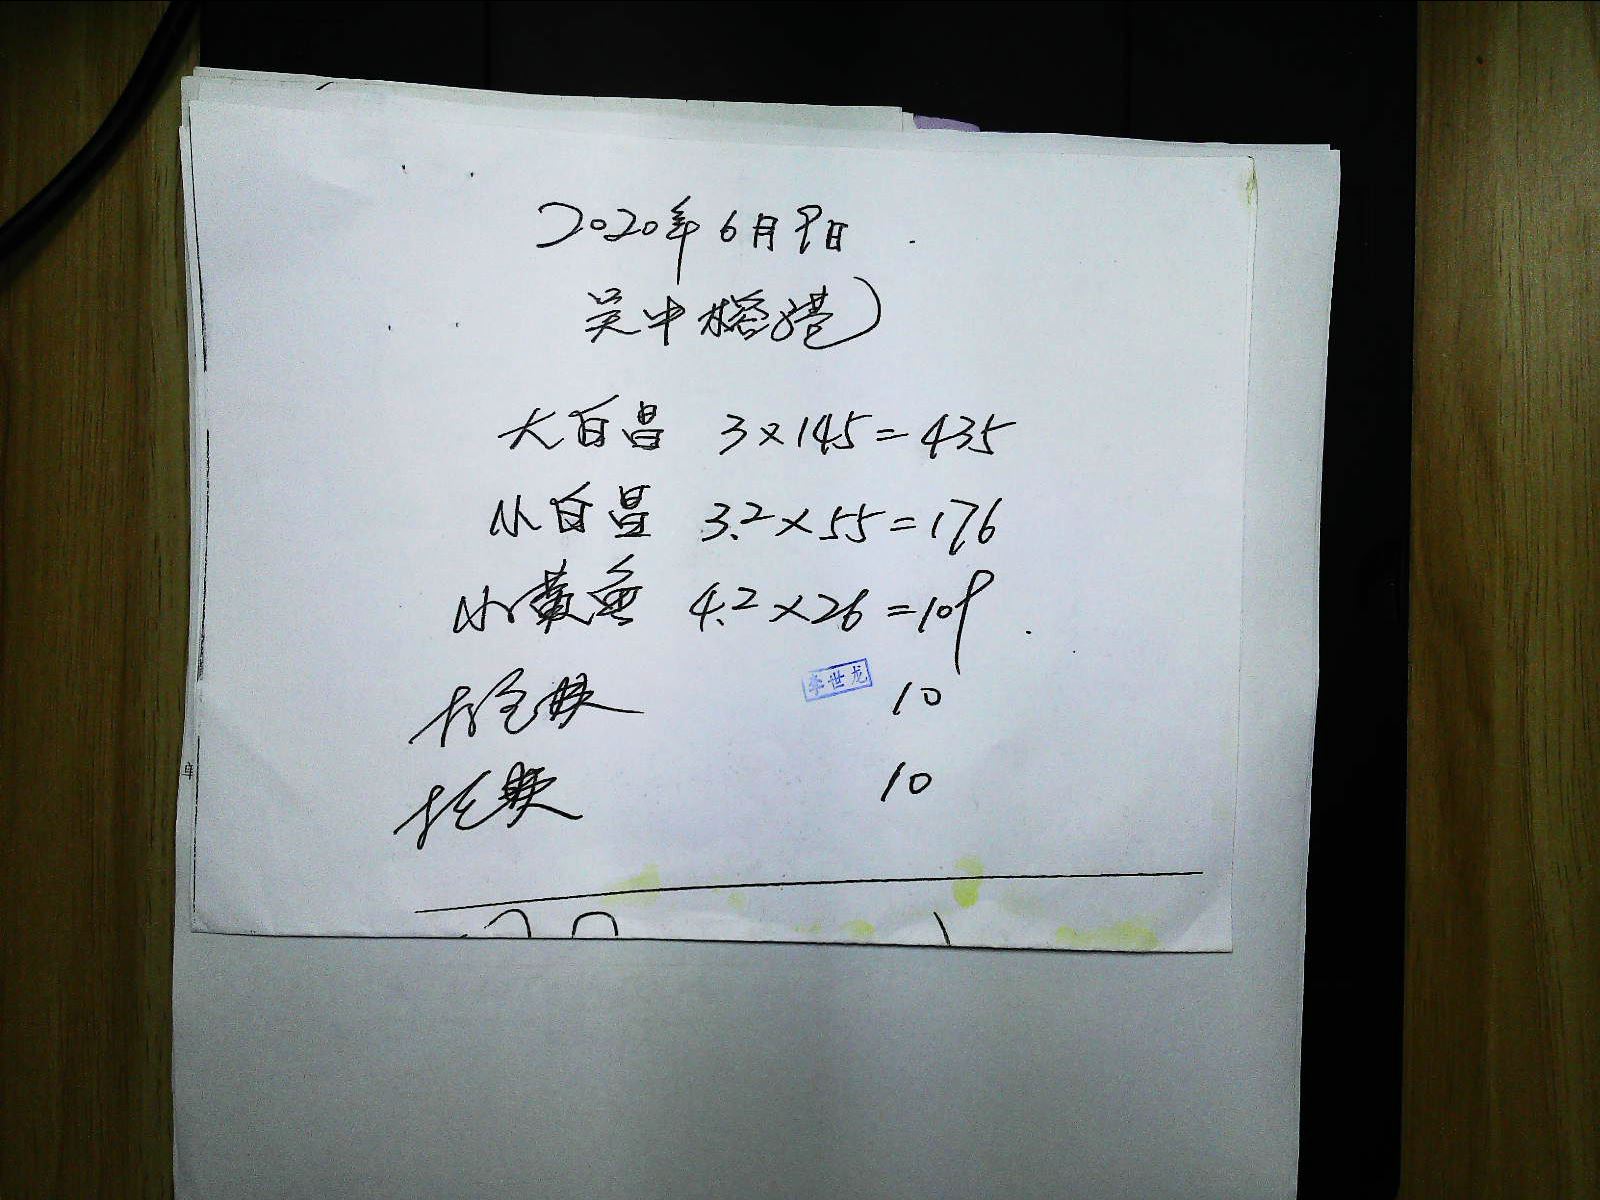 2020年6月9日
吴中榕港)
大白昌 3×145=435
小白昌 3.2×55=176
小黄鱼 4.2×26=109
李世龙
10
10